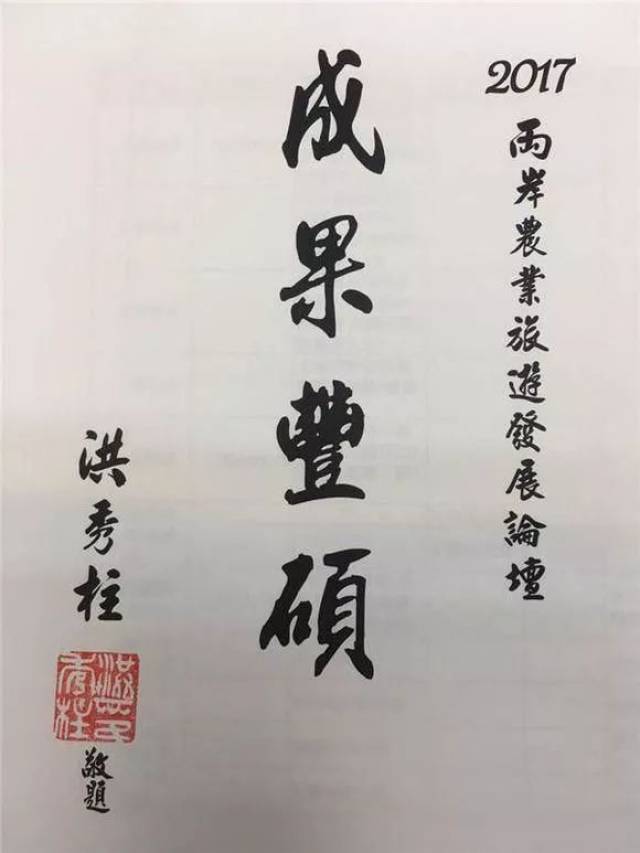 2017
兩岸農業旅遊發展論壇
成果豐碩
洪秀柱
洪氏秀柱
敬題